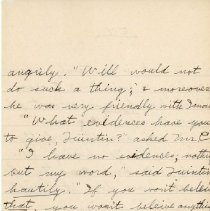 angrily. "Will would not
do such a thing; & moreover
he was very friendly with
"What evidences have you
to give, Quintin?" asked Mr.
"I have no evidence, noth
but my word," said Quintin
hautily. "If you won't belei
that you won't beleive anyth